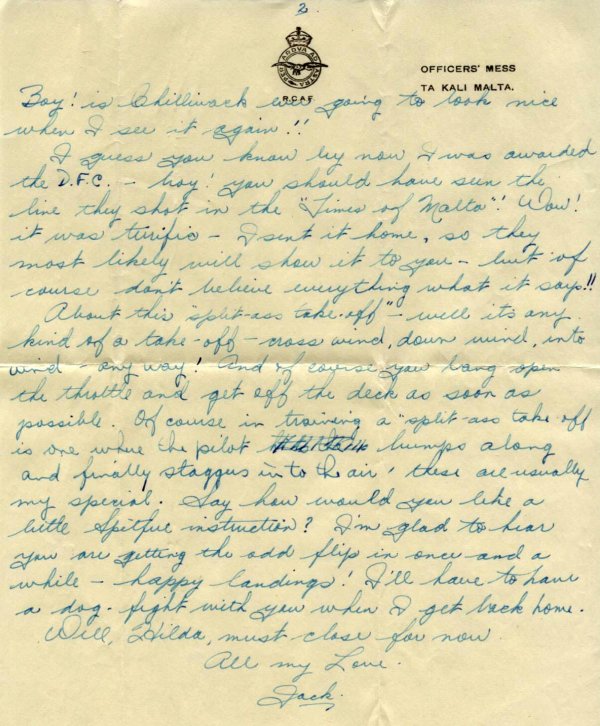 2
PER ARDVA AD ASTRA
R.C.A.F.
OFFICERS' MESS
TA KALI MALTA.
Boy! is Chilliwack ever going to look nice
when I see it again!!
I guess you know by now I was awarded
the D.F.C. – boy! you should have seen the
line they shot in the "Times of Malta"! Wow!
it was turific – I sent it home, so they
most likely will show it to you – but of
course don't believe everything what it says!!
About this "split-ass take-off" – well its any
kind of a take-off – cross wind, down wind, into
wind – any way! And of course you bang open
the throttle and get off the deck as soon as
possible. Of course in training a "split-ass take off
is one where the pilot bumps along
and finally staggers in to the air! these are usually
my special. Say how would you like a
little Spitfire instruction? I'm glad to hear
you are getting the odd flip in once and a
while – happy landings! I'll have to have
a dog-fight with you when I get back home.
Well, Hilda, must close for now.
All my Love.
Jack.